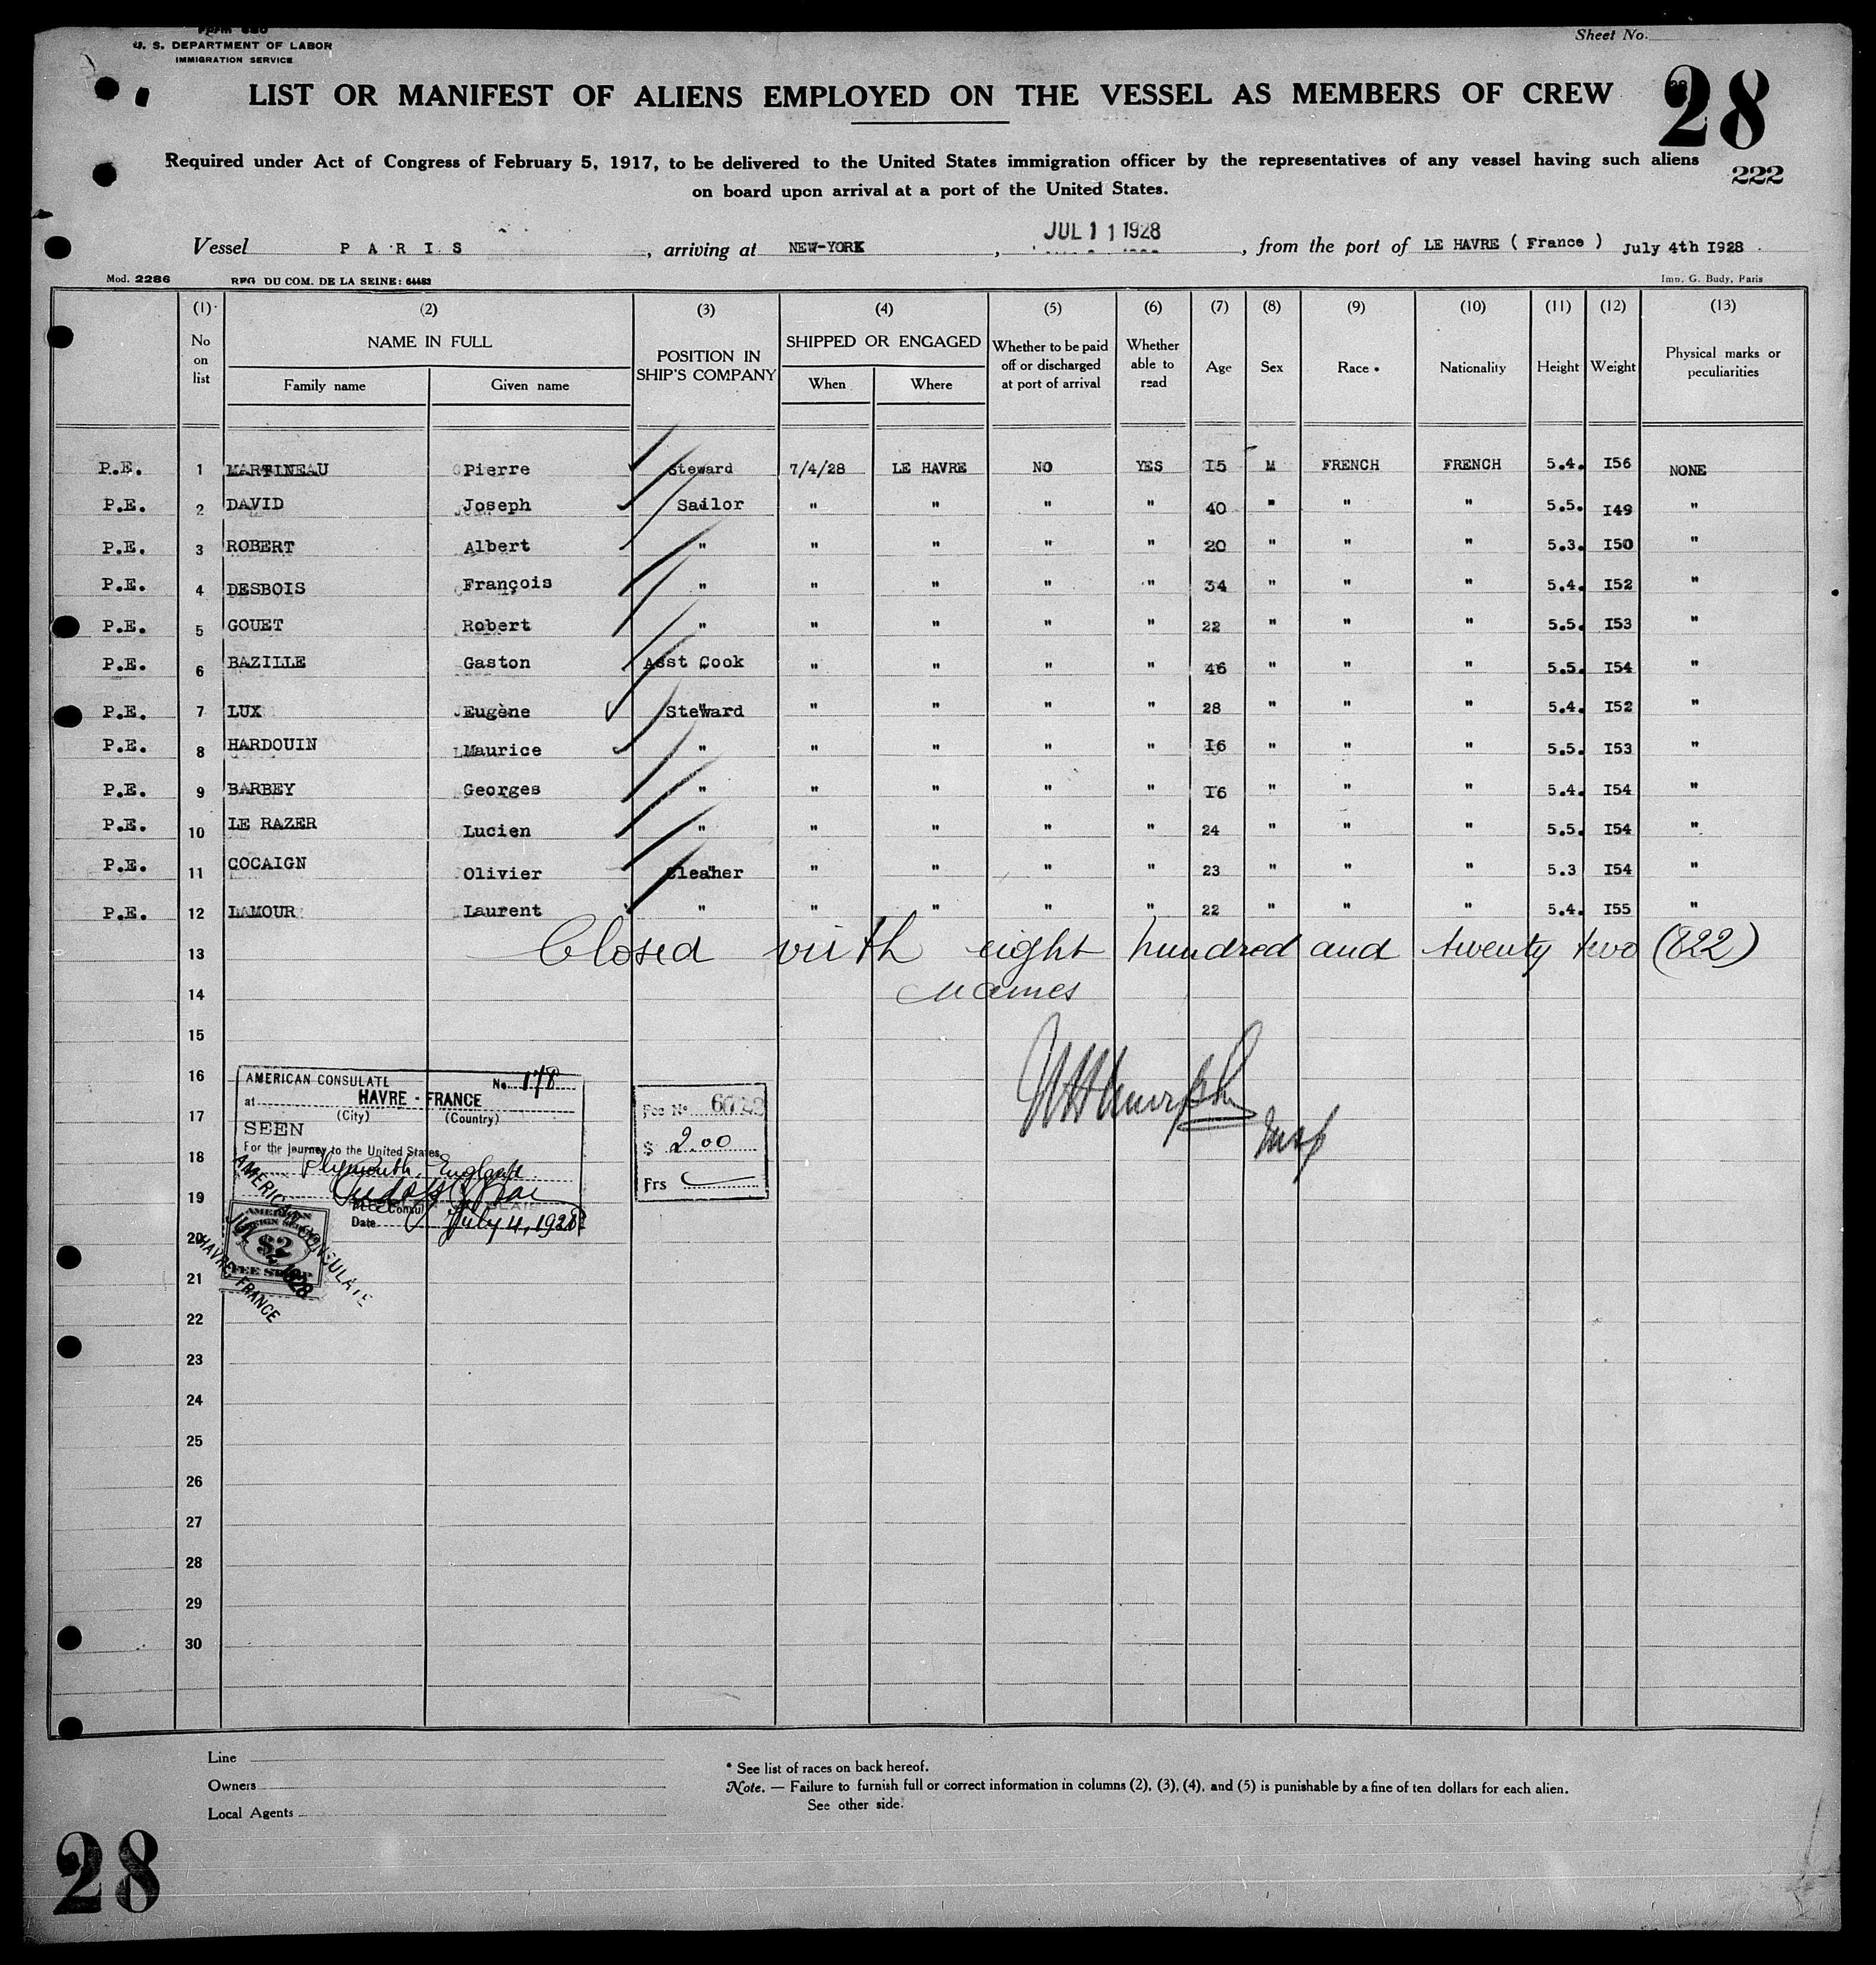 Form 680
U. S. DEPARTMENT OF LABOR
IMMIGRATION SERVICE
Sheet No.
LIST OR MANIFEST OF ALIENS EMPLOYED ON THE VESSEL AS MEMBERS OF CREW
28
Required under Act of Congress of February 5, 1917, to be delivered to the United States immigration officer by the representatives of any vessel having such aliens
222
on board upon arrival at a port of the United States.
JUL 11 1928
Vessel P A R I S , arriving at NEW-YORK , , from the port of LE HAVRE ( France ) July 4th I928
Mod. 2286 REG. DU COM. DE LA SEINE: 64483 Imp. G. Budy, Paris
(1) (2) (3) (4) (5) (6) (7) (8) (9) (10) (11) (12) (13)
No on list NAME IN FULL POSITION IN SHIP'S COMPANY SHIPPED OR ENGAGED Whether to be paid off or discharged at port of arrival Whether able to read Age Sex Race * Nationality Height Weight Physical marks or peculiarities
Family name Given name When Where
P.E. 1 MARTINEAU Pierre Steward 7/4/28 LE HAVRE NO YES I5 M FRENCH FRENCH 5.4. I56 NONE
P.E. 2 DAVID Joseph Sailor " " " " 40 " " " 5.5. I49 "
P.E. 3 ROBERT Albert " " " " " 20 " " " 5.3. I50 "
P.E. 4 DESBOIS François " " " " " 34 " " " 5.4. I52 "
P.E. 5 GOUET Robert " " " " " 22 " " " 5.5. I53 "
P.E. 6 BAZILLE Gaston Asst Cook " " " " 46 " " " 5.5. I54 "
P.E. 7 LUX Eugène Steward " " " " 28 " " " 5.4. I52 "
P.E. 8 HARDOUIN Maurice " " " " " I6 " " " 5.5. I53 "
P.E. 9 BARBEY Georges " " " " " I6 " " " 5.4. I54 "
P.E. 10 LE RAZER Lucien " " " " " 24 " " " 5.5. I54 "
P.E. 11 COCAIGN Olivier Cleaner " " " " 23 " " " 5.3 I54 "
P.E. 12 LAMOUR Laurent " " " " " 22 " " " 5.4. I55 "
13 Closed with eight hundred and twenty two (822)
14 names
15
16
17
18
19
20
21
22
23
24
25
26
27
28
29
30
AMERICAN CONSULATE No. 178
at HAVRE - FRANCE
(City) (Country)
SEEN
For the journey to the United States
Plymouth, England
Consul
Date July 4, 1928
Fee No
$ 2.00
Frs
Insp
AMERICAN CONSULATE
JUL 4 1928
HAVRE FRANCE
AMERICAN
FOREIGN SERVICE
$2
FEE STAMP
Line
Owners
Local Agents
* See list of races on back hereof.
Note. — Failure to furnish full or correct information in columns (2), (3), (4), and (5) is punishable by a fine of ten dollars for each alien.
See other side.
28